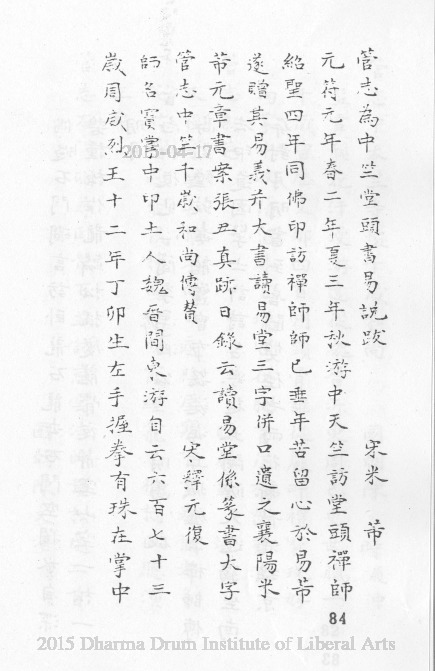 管志為中竺堂頭書易說跋　　宋米　芾
元符元年春二年夏三年秋游中天竺訪堂頭禪師
紹聖四年同佛印訪禪師師已垂年苦留心於易芾
遂贈其易義并大書讀易堂三字併口遺之襄陽米
芾元章書案張丑真跡日錄云讀易堂係篆書大字
管志中竺千歲和尚傳贊　　宋釋元復
師名寶掌中印土人魏晉間東游自云六百七十三
歲周威烈王十二年丁卯生左手握拳有珠在掌中
84
2015-04-17
2015 Dharma Drum Institute of Liberal Arts